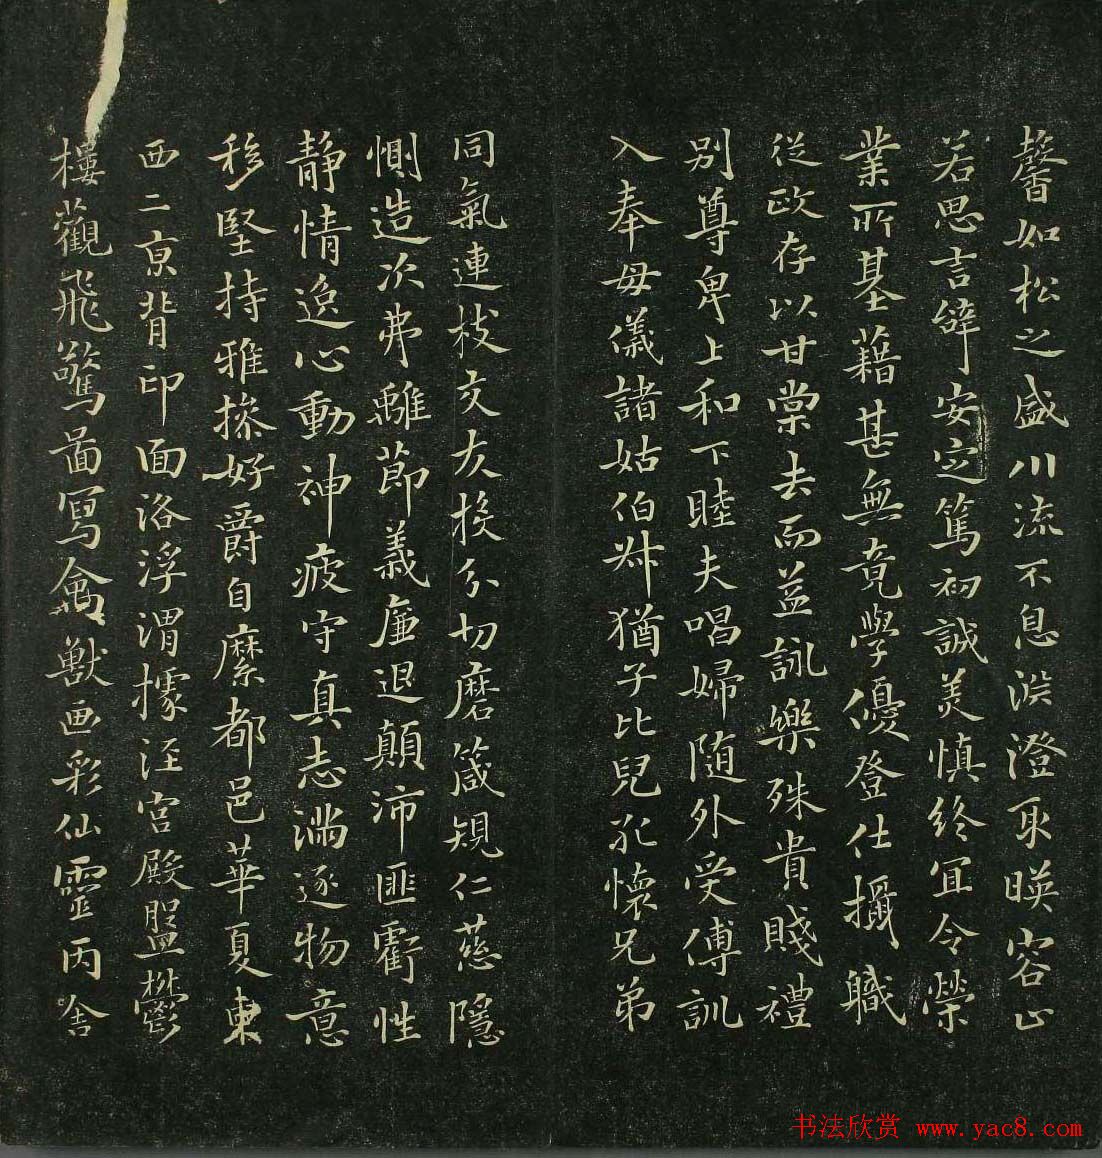 馨如松之盛川流不息淵澄取暎容止
若思言辞安定篤初誠美慎終宜令榮
業所基藉甚無竟學優登仕攝職
從政存以甘棠去而益詠樂殊貴賤禮
別尊卑上和下睦夫唱婦隨外受傅訓
入奉母儀諸姑伯叔猶子比兒孔懷兄弟
同氣連枝交友投分切磨箴規仁慈隱
惻造次弗離節義廉退顛沛匪虧性
靜情逸心動神疲守真志滿逐物意
移堅持雅操好爵自縻都邑華夏東
西二京背邙面洛浮渭據涇宮殿盤鬱
樓觀飛驚啚寫禽獸画彩仙靈丙舍
书法欣赏 www.yac8.com